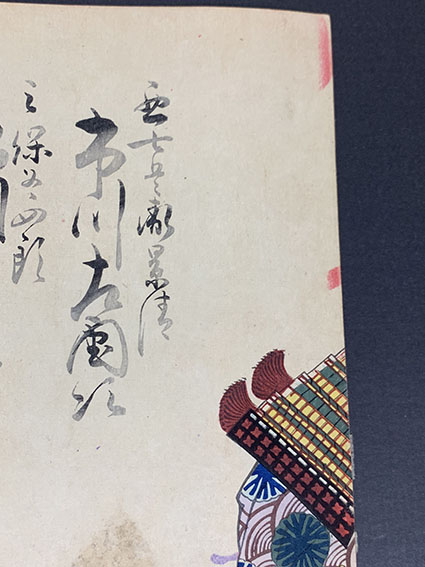 悪七兵衛景清
市川左團次
三保谷四郎